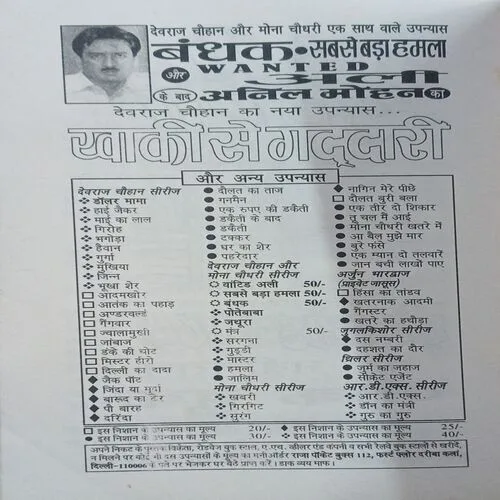 देवराज चौहान और मोना चौधरी एक साथ वाले उपन्यास
बंधक • सबसे बड़ा हमला
WANTED
और अली
के बाद अनिल मोहन का
देवराज चौहान का नया उपन्यास...
खाकी से गद्दारी
और अन्य उपन्यास
देवराज चौहान सीरीज
डॉलर मामा
हाई जैकर
माई का लाल
गिरोह
भगोड़ा
हैवान
गुर्गा
मुखिया
जिन्न
भूखा शेर
आदमखोर
आतंक का पहाड़
अण्डरवर्ल्ड
गैंगवार
ज्वालामुखी
जांबाज
डंके की चोट
मिस्टर हीरो
दिल्ली का दादा
जैक पॉट
जिंदा या मुर्दा
बारूद का ढेर
पी बारह
दरिंदा
दौलत का ताज
गनमैन
एक रुपए की डकैती
डकैती के बाद
डकैती
टक्कर
घर का शेर
पहरेदार
देवराज चौहान और
मोना चौधरी सीरीज
वांटिड अली 50/-
सबसे बड़ा हमला 50/-
बंधक 50/-
पोतेबाबा
जथूरा
मंत्र 50/-
सरगना
गुड्डी
मास्टर
हमला
जालिम
मोना चौधरी सीरीज
खबरी
गिरगिट
सुरंग
नागिन मेरे पीछे
दौलत बुरी बला
एक तीर दो शिकार
तू चल मैं आई
मोना चौधरी खतरे में
आ बैल मुझे मार
बुरे फंसे
एक म्यान दो तलवारें
जान बची लाखों पाए
अर्जुन भारद्वाज
(प्राइवेट जासूस)
हिंसा का तांडव
खतरनाक आदमी
गैंगस्टर
खतरे का हथौड़ा
जुगलकिशोर सीरीज
दस नम्बरी
दहशत का दौर
थ्रिलर सीरीज
जुर्म का जहाज
सीक्रेट एजेंट
आर.डी.एक्स. सीरीज
आर.डी.एक्स.
डॉन का मंत्री
गुरु का गुरु
इस निशान के उपन्यास का मूल्य 20/- इस निशान के उपन्यास का मूल्य 25/-
इस निशान के उपन्यास का मूल्य 30/- इस निशान के उपन्यास का मूल्य 40/-
अपने निकट के पुस्तक विक्रेता, रोडवेज बुक स्टाल, ए.एच. व्हीलर एंड कंपनी व सभी रेलवे बुक स्टालों से खरीदें,
न मिलने पर कोई भी दस उपन्यासों के मूल्य का मनीऑर्डर राजा पॉकेट बुक्स 112, फर्स्ट फ्लोर दरीबा कलां,
दिल्ली-110006 के पते पर भेजकर घर बैठे प्राप्त करें। डाक व्यय माफ।